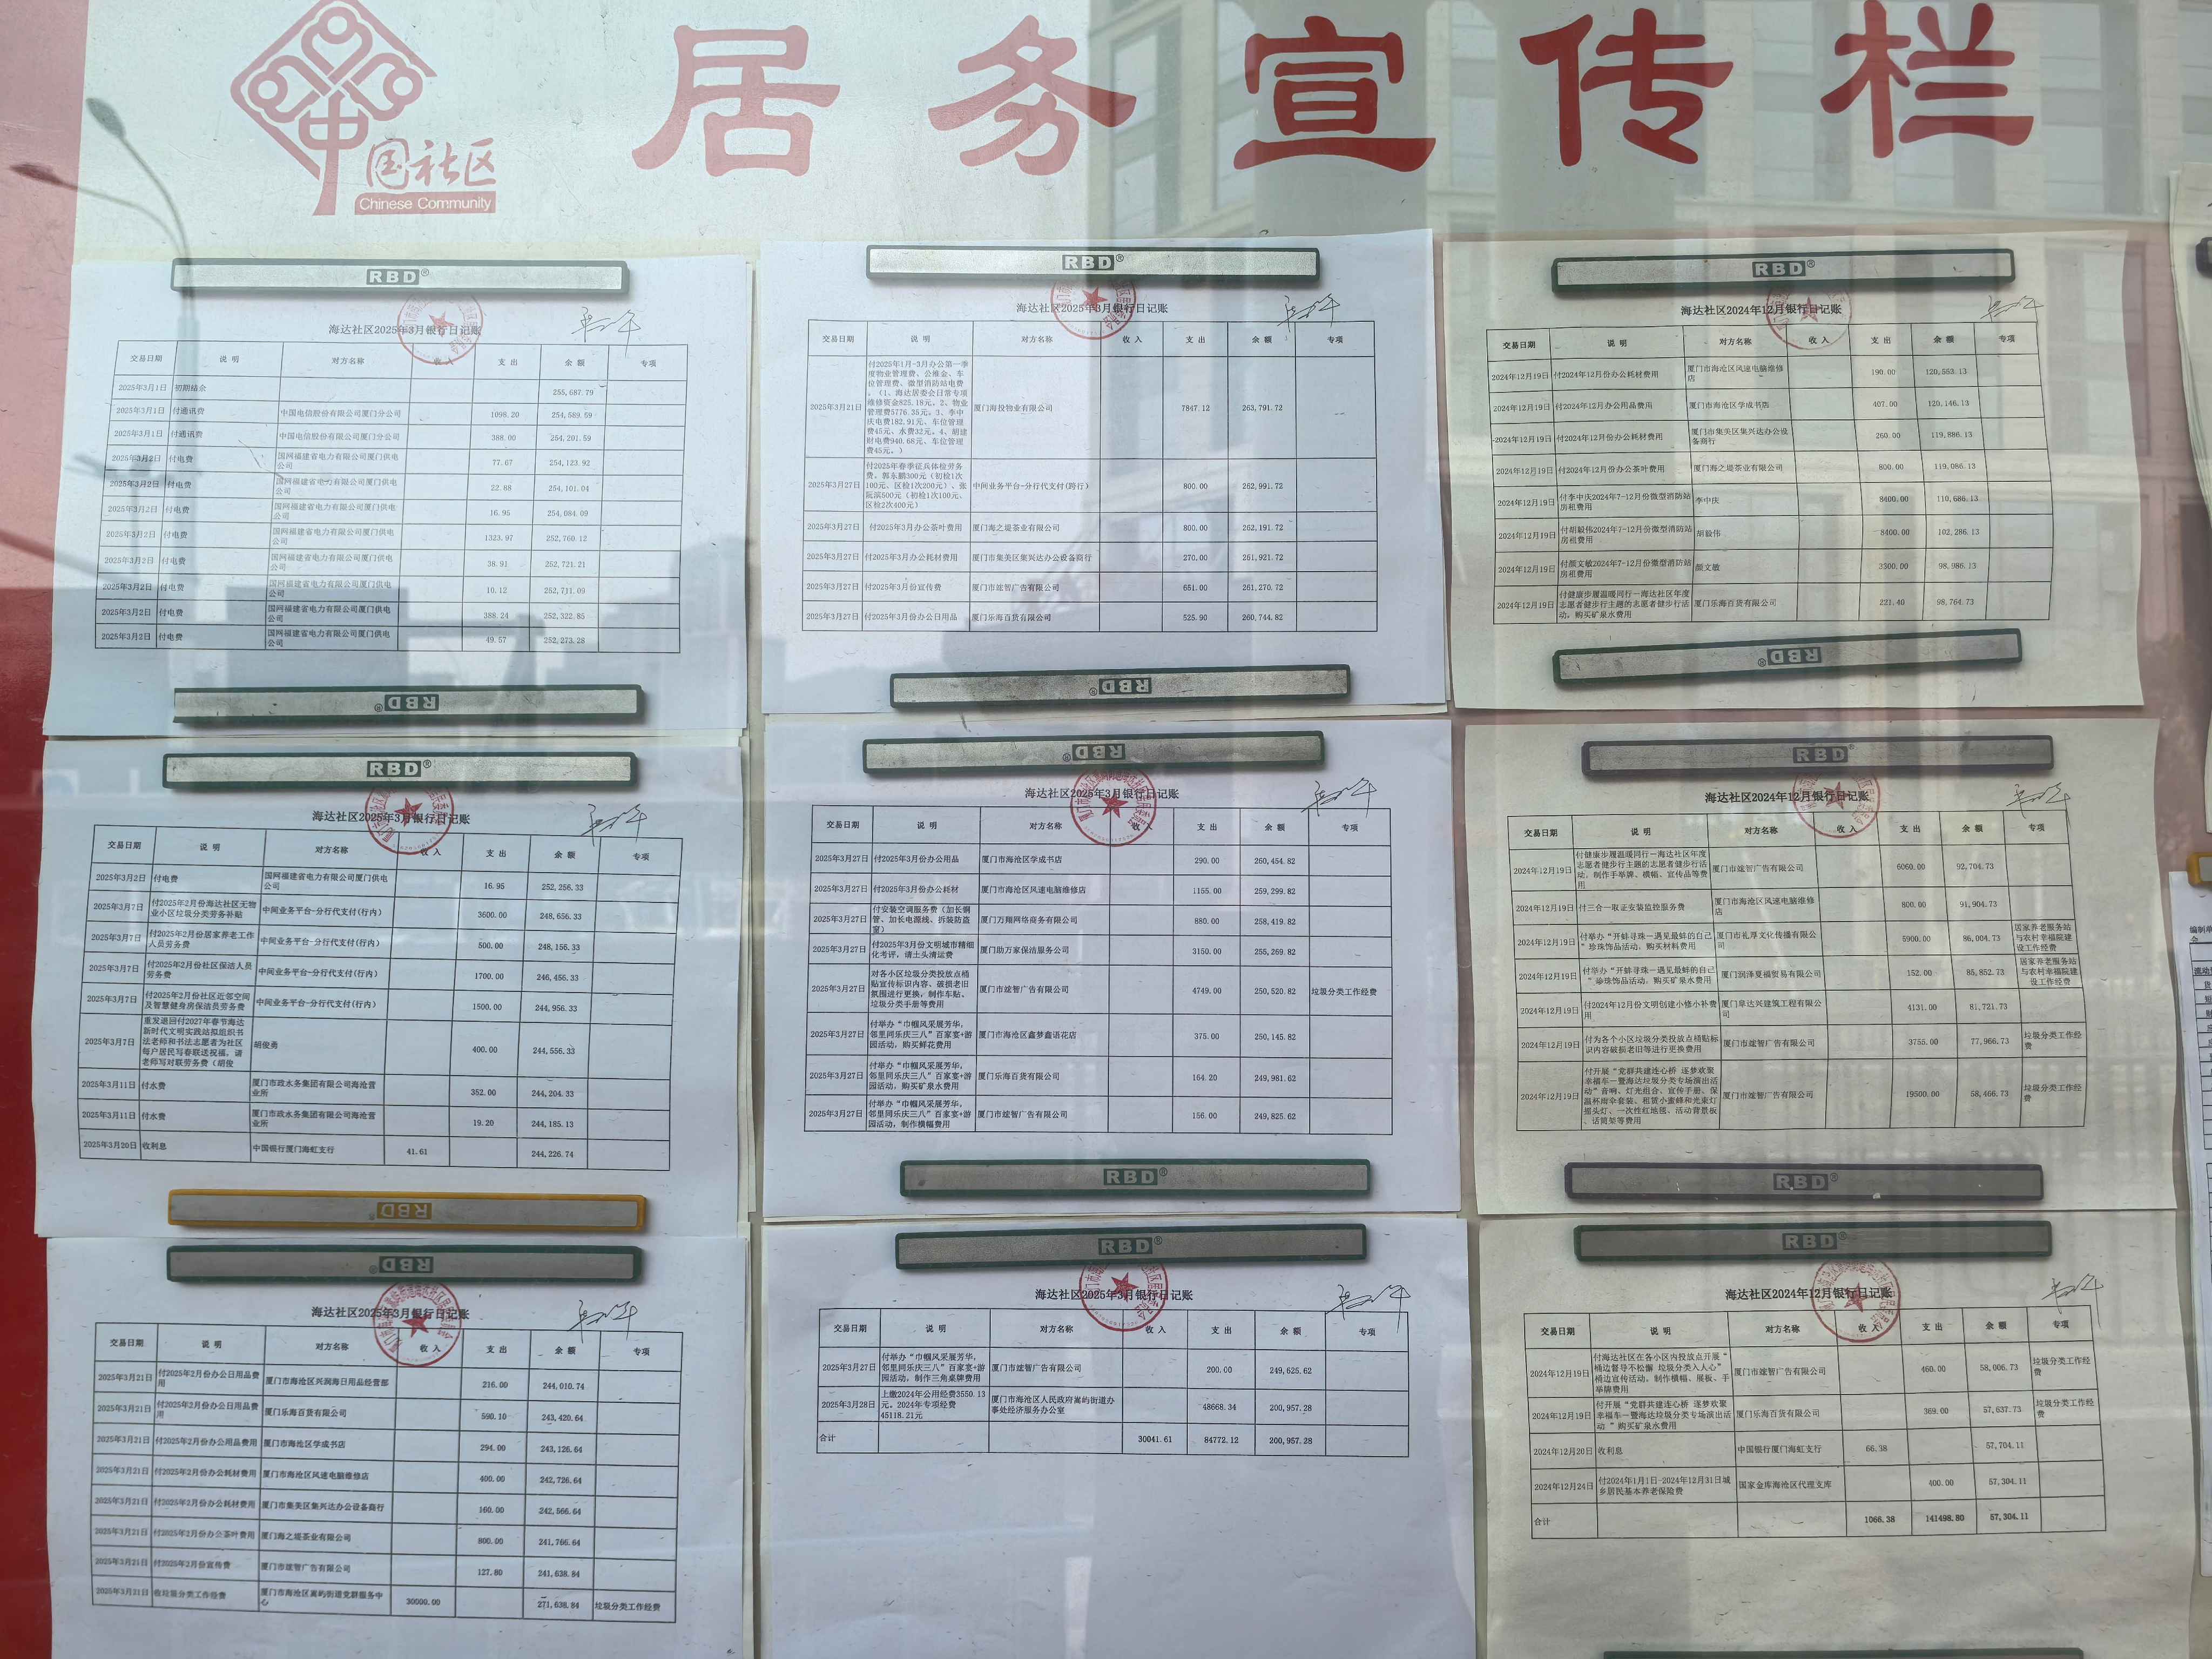 居务宣传栏
中国社区
Chinese Community
RBD®
海达社区2025年3月银行日记账
交易日期 说 明 对方名称 收 入 支 出 余 额 专项
2025年3月1日 初期结余 255,687.79
2025年3月1日 付通讯费 中国电信股份有限公司厦门分公司 1098.20 254,589.59
2025年3月1日 付通讯费 中国电信股份有限公司厦门分公司 388.00 254,201.59
2025年3月2日 付电费 国网福建省电力有限公司厦门供电公司 77.67 254,123.92
2025年3月2日 付电费 国网福建省电力有限公司厦门供电公司 22.88 254,101.04
2025年3月2日 付电费 国网福建省电力有限公司厦门供电公司 16.95 254,084.09
2025年3月2日 付电费 国网福建省电力有限公司厦门供电公司 1323.97 252,760.12
2025年3月2日 付电费 国网福建省电力有限公司厦门供电公司 38.91 252,721.21
2025年3月2日 付电费 国网福建省电力有限公司厦门供电公司 10.12 252,711.09
2025年3月2日 付电费 国网福建省电力有限公司厦门供电公司 388.24 252,322.85
2025年3月2日 付电费 国网福建省电力有限公司厦门供电公司 49.57 252,273.28
RBD®
RBD®
海达社区2025年3月银行日记账
交易日期 说 明 对方名称 收 入 支 出 余 额 专项
2025年3月21日 付2025年1月-3月办公第一季度物业管理费、公维金、车位管理费、微型消防站电费。(1、海达居委会日常专项维修资金825.18元。2、物业管理费5776.35元。3、李中庆电费182.91元、车位管理费45元、水费32元。4、胡建财电费940.68元、车位管理费45元。) 厦门海投物业有限公司 7847.12 263,791.72
2025年3月27日 付2025年春季征兵体检劳务费。郭东鹏300元(初检1次100元、区检1次200元)、张阮滨500元(初检1次100元、区检2次400元) 中间业务平台-分行代支付(跨行) 800.00 262,991.72
2025年3月27日 付2025年3月办公茶叶费用 厦门海之堤茶业有限公司 800.00 262,191.72
2025年3月27日 付2025年3月办公耗材费用 厦门市集美区集兴达办公设备商行 270.00 261,921.72
2025年3月27日 付2025年3月份宣传费 厦门市竑智广告有限公司 651.00 261,270.72
2025年3月27日 付2025年3月份办公日用品 厦门乐海百货有限公司 525.90 260,744.82
RBD®
RBD®
海达社区2024年12月银行日记账
交易日期 说 明 对方名称 收 入 支 出 余 额 专项
2024年12月19日 付2024年12月份办公耗材费用 厦门市海沧区风速电脑维修店 190.00 120,553.13
2024年12月19日 付2024年12月办公用品费用 厦门市海沧区学成书店 407.00 120,146.13
2024年12月19日 付2024年12月份办公耗材费用 厦门市集美区集兴达办公设备商行 260.00 119,886.13
2024年12月19日 付2024年12月份办公茶叶费用 厦门海之堤茶业有限公司 800.00 119,086.13
2024年12月19日 付李中庆2024年7-12月份微型消防站房租费用 李中庆 8400.00 110,686.13
2024年12月19日 付胡毅伟2024年7-12月份微型消防站房租费用 胡毅伟 8400.00 102,286.13
2024年12月19日 付颜文敏2024年7-12月份微型消防站房租费用 颜文敏 98,986.13
2024年12月19日 付健康步履温暖同行—海达社区年度志愿者健步行主题的志愿者健步行活动，购买矿泉水费用 厦门乐海百货有限公司 221.40 98,764.73
RBD®
RBD®
海达社区2025年3月银行日记账
交易日期 说 明 对方名称 收 入 支 出 余 额 专项
2025年3月2日 付电费 国网福建省电力有限公司厦门供电公司 16.95 252,256.33
2025年3月7日 付2025年2月份海达社区无物业小区垃圾分类劳务补贴 中间业务平台-分行代支付(行内) 3600.00 248,656.33
2025年3月7日 付2025年2月份居家养老工作人员劳务费 中间业务平台-分行代支付(行内) 500.00 248,156.33
2025年3月7日 付2025年2月份社区保洁人员劳务费 中间业务平台-分行代支付(行内) 1700.00 246,456.33
2025年3月7日 付2025年2月份社区近邻空间及智慧健身房保洁员劳务费 中间业务平台-分行代支付(行内) 1500.00 244,956.33
2025年3月7日 重发退回付2027年春节海达新时代文明实践站拟组织书法老师和书法志愿者为社区每户居民写春联送祝福，请老师写对联劳务费（胡俊 胡俊勇 400.00 244,556.33
2025年3月11日 付水费 厦门市政水务集团有限公司海沧营业所 352.00 244,204.33
2025年3月11日 付水费 厦门市政水务集团有限公司海沧营业所 19.20 244,185.13
2025年3月20日 收利息 中国银行厦门海虹支行 41.61 244,226.74
RBD®
RBD®
海达社区2025年3月银行日记账
交易日期 说 明 对方名称 收 入 支 出 余 额 专项
2025年3月27日 付2025年3月份办公用品 厦门市海沧区学成书店 290.00 260,454.82
2025年3月27日 付2025年3月份办公耗材 厦门市海沧区风速电脑维修店 1155.00 259,299.82
2025年3月27日 付安装空调服务费（加长铜管、加长电源线、拆装防盗窗） 厦门万翔网络商务有限公司 880.00 258,419.82
2025年3月27日 付2025年3月份文明城市精细化考评，请土头清运费 厦门助万家保洁服务公司 3150.00 255,269.82
2025年3月27日 对各小区垃圾分类投放点桶贴宣传标识内容、破损老旧氛围进行更换，制作车贴、垃圾分类手册等费用 厦门市竑智广告有限公司 4749.00 250,520.82 垃圾分类工作经费
2025年3月27日 付举办“巾帼风采展芳华，邻里同乐庆三八”百家宴+游园活动，购买鲜花费用 厦门市海沧区鑫梦鑫语花店 375.00 250,145.82
2025年3月27日 付举办“巾帼风采展芳华，邻里同乐庆三八”百家宴+游园活动，购买矿泉水费用 厦门乐海百货有限公司 164.20 249,981.62
2025年3月27日 付举办“巾帼风采展芳华，邻里同乐庆三八”百家宴+游园活动，制作横幅费用 厦门市竑智广告有限公司 156.00 249,825.62
RBD®
RBD®
海达社区2024年12月银行日记账
交易日期 说 明 对方名称 收 入 支 出 余 额 专项
2024年12月19日 付健康步履温暖同行—海达社区年度志愿者健步行主题的志愿者健步行活动，制作手举牌、横幅、宣传品等费用 厦门市竑智广告有限公司 6060.00 92,704.73
2024年12月19日 付三合一取证安装监控服务费 厦门市海沧区风速电脑维修店 800.00 91,904.73
2024年12月19日 付举办“开蚌寻珠—遇见最蚌的自己”珍珠饰品活动，购买材料费用 厦门市礼厚文化传播有限公司 5900.00 86,004.73 居家养老服务站与农村幸福院建设工作经费
2024年12月19日 付举办“开蚌寻珠—遇见最蚌的自己”珍珠饰品活动，购买矿泉水费用 厦门润泽夏福贸易有限公司 152.00 85,852.73 居家养老服务站与农村幸福院建设工作经费
2024年12月19日 付2024年12月份文明创建小修小补费用 厦门阜达兴建筑工程有限公司 4131.00 81,721.73
2024年12月19日 付为各个小区垃圾分类投放点桶贴标识内容破损老旧等进行更换费用 厦门市竑智广告有限公司 3755.00 77,966.73 垃圾分类工作经费
2024年12月19日 付开展“党群共建连心桥 逐梦欢聚幸福车—暨海达垃圾分类专场演出活动”音响、灯光组合、宣传手册、保温杯雨伞套装、租赁小蜜蜂和光束灯摇头灯、一次性红地毯、活动背景板、话筒架等费用 厦门市竑智广告有限公司 19500.00 58,466.73 垃圾分类工作经费
RBD®
RBD®
海达社区2025年3月银行日记账
交易日期 说 明 对方名称 收 入 支 出 余 额 专项
2025年3月21日 付2025年2月份办公日用品费用 厦门市海沧区兴润海日用品经营部 216.00 244,010.74
2025年3月21日 付2025年2月份办公日用品费用 厦门乐海百货有限公司 590.10 243,420.64
2025年3月21日 付2025年2月份办公用品费用 厦门市海沧区学成书店 294.00 243,126.64
2025年3月21日 付2025年2月份办公耗材费用 厦门市海沧区风速电脑维修店 400.00 242,726.64
2025年3月21日 付2025年2月份办公耗材费用 厦门市集美区集兴达办公设备商行 160.00 242,566.64
2025年3月21日 付2025年2月份办公茶叶费用 厦门海之堤茶业有限公司 800.00 241,766.64
2025年3月21日 付2025年2月份宣传费 厦门市竑智广告有限公司 127.80 241,638.84
2025年3月21日 收垃圾分类工作经费 厦门市海沧区嵩屿街道党群服务中心 30000.00 271,638.84 垃圾分类工作经费
RBD®
海达社区2025年3月银行日记账
交易日期 说 明 对方名称 收 入 支 出 余 额 专项
2025年3月27日 付举办“巾帼风采展芳华，邻里同乐庆三八”百家宴+游园活动，制作三角桌牌费用 厦门市竑智广告有限公司 200.00 249,625.62
2025年3月28日 上缴2024年公用经费3550.13元。2024年专项经费45118.21元 厦门市海沧区人民政府嵩屿街道办事处经济服务办公室 48668.34 200,957.28
合计 30041.61 84772.12 200,957.28
RBD®
海达社区2024年12月银行日记账
交易日期 说 明 对方名称 收 入 支 出 余 额 专项
2024年12月19日 付海达社区在各小区内投放点开展“桶边督导不松懈 垃圾分类入人心”桶边宣传活动，制作横幅、展板、手举牌费用 厦门市竑智广告有限公司 460.00 58,006.73 垃圾分类工作经费
2024年12月19日 付开展“党群共建连心桥 逐梦欢聚幸福车—暨海达垃圾分类专场演出活动”购买矿泉水费用 厦门乐海百货有限公司 369.00 57,637.73 垃圾分类工作经费
2024年12月20日 收利息 中国银行厦门海虹支行 66.38 57,704.11
2024年12月24日 付2024年1月1日-2024年12月31日城乡居民基本养老保险费 国家金库海沧区代理支库 400.00 57,304.11
合计 1066.38 141498.80 57,304.11